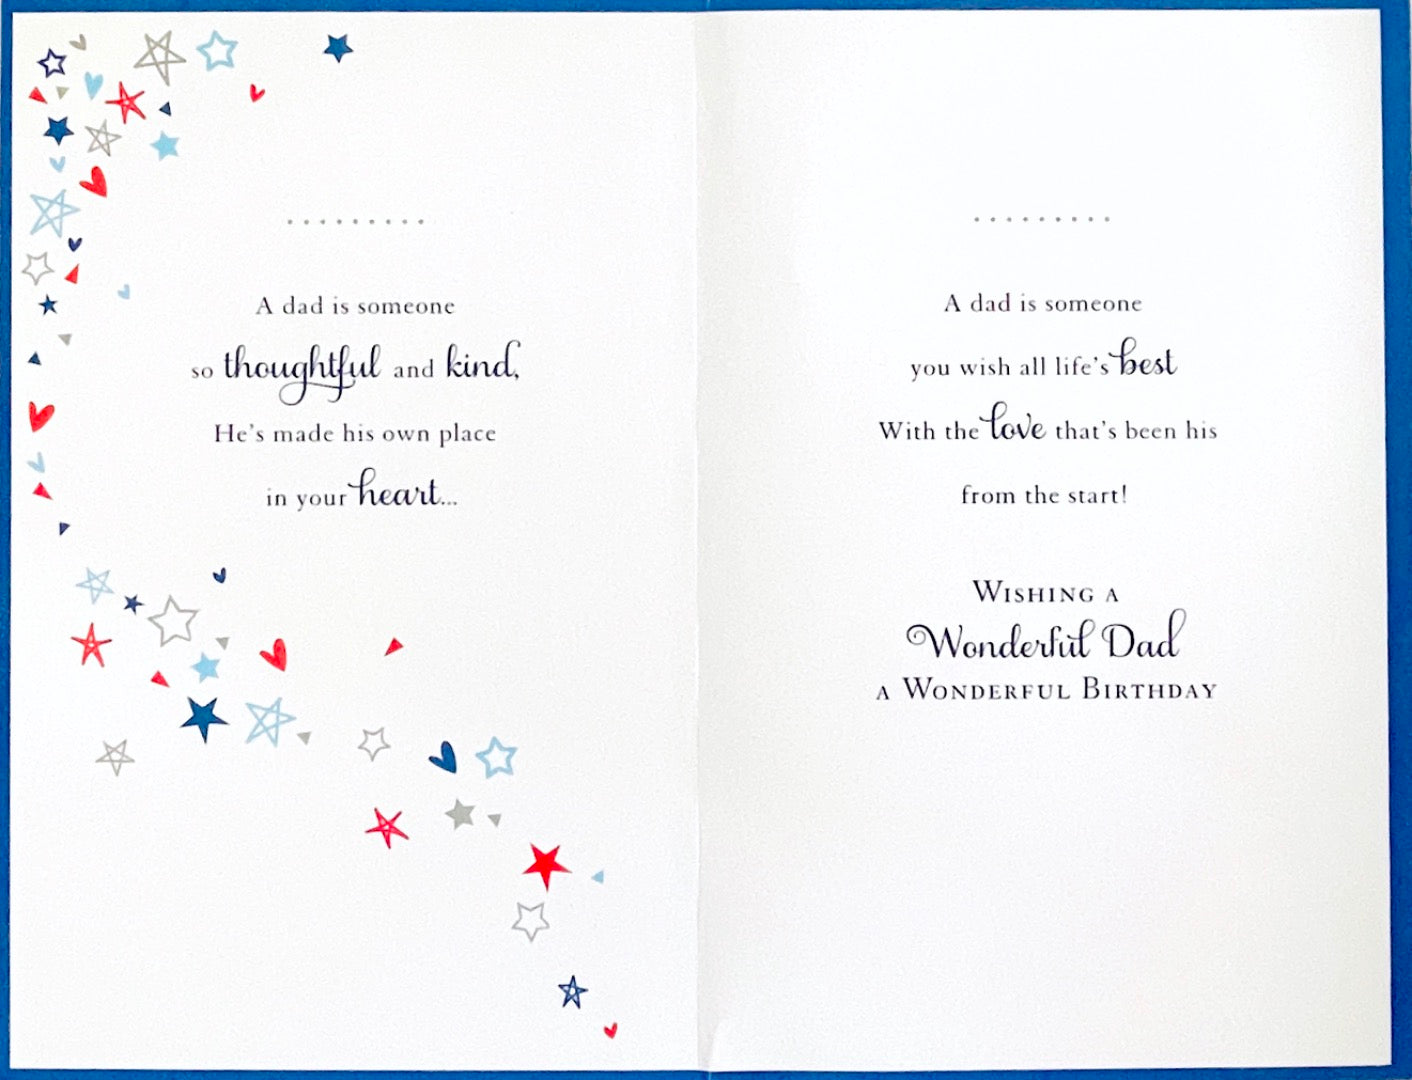 A dad is someone
so thoughtful and kind,
He's made his own place
in your heart...
A dad is someone
you wish all life's best
With the love that's been his
from the start!
WISHING A
Wonderful Dad
A WONDERFUL BIRTHDAY